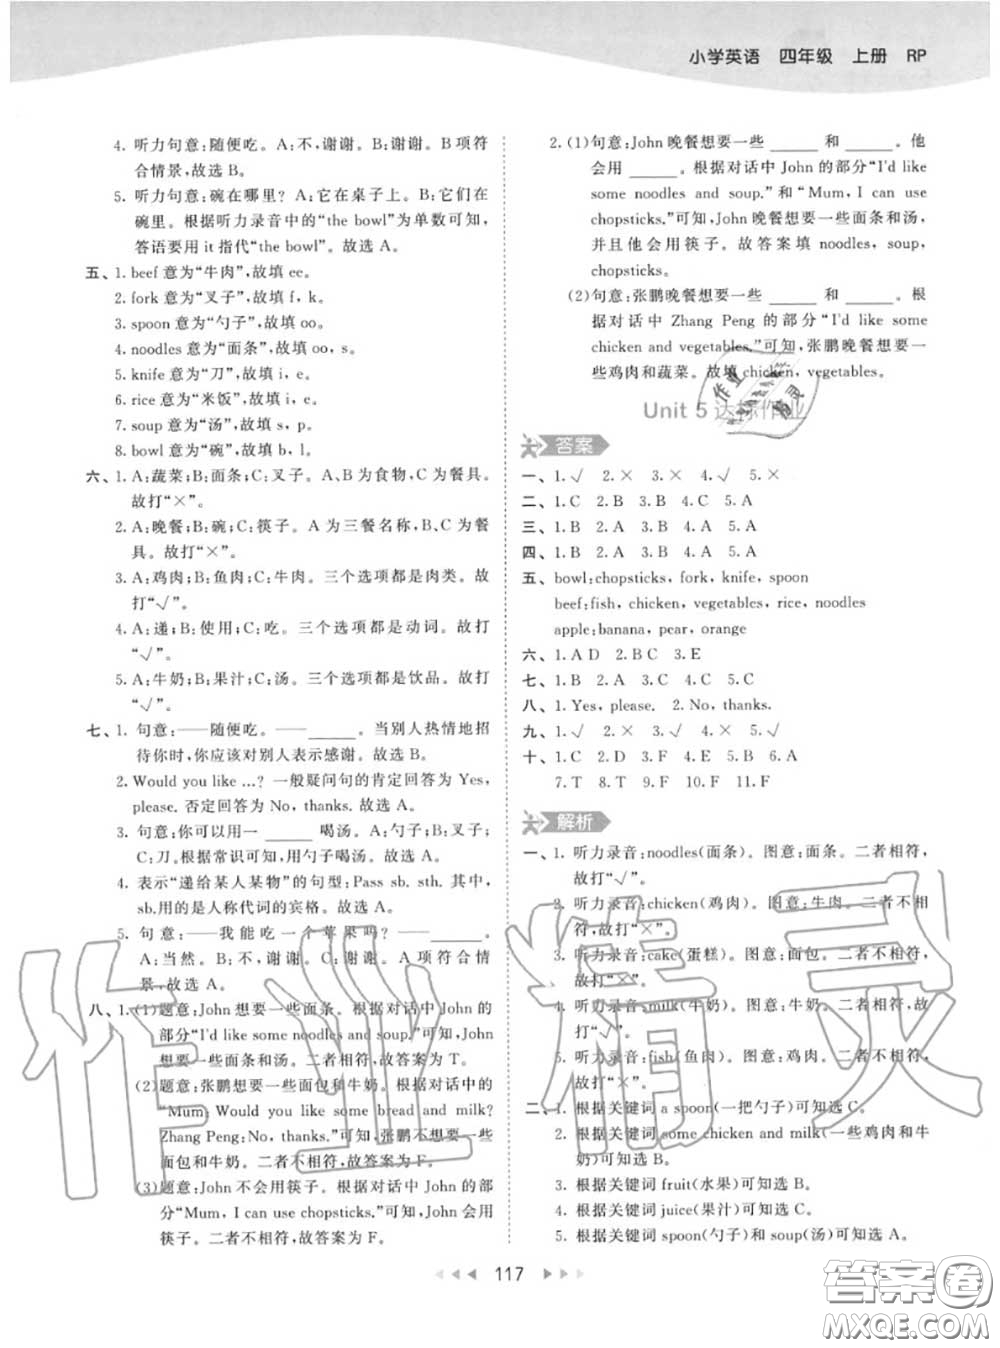 小学英语 四年级 上册 RP
4. 听力句意:随便吃。A:不,谢谢。B:谢谢。B项符
合情景,故选 B。
5. 听力句意:碗在哪里? A:它在桌子上。B:它们在
碗里。根据听力录音中的“the bowl”为单数可知,
答语要用 it 指代“the bowl”。故选 A。
五、1. beef 意为“牛肉”,故填 ee。
2. fork 意为“叉子”,故填 f, k。
3. spoon 意为“勺子”,故填 oo。
4. noodles 意为“面条”,故填 oo, s。
5. knife 意为“刀”,故填 i, e。
6. rice 意为“米饭”,故填 i, e。
7. soup 意为“汤”,故填 s, p。
8. bowl 意为“碗”,故填 b, l。
六、1. A:蔬菜;B:面条;C:叉子。A、B为食物,C为餐具。
故打“×”。
2. A:晚餐;B:碗;C:筷子。A 为三餐名称,B、C为餐
具。故打“×”。
3. A:鸡肉;B:鱼肉;C:牛肉。三个选项都是肉类。故
打“√”。
4. A:递;B:使用;C:吃。三个选项都是动词。故打
“√”。
5. A:牛奶;B:果汁;C:汤。三个选项都是饮品。故打
“√”。
七、1. 句意:——随便吃。——______。当别人热情地招
待你时,你应该对别人表示感谢。故选 B。
2. Would you like ...? 一般疑问句的肯定回答为 Yes,
please. 否定回答为 No, thanks. 故选 A。
3. 句意:你可以用一 ______ 喝汤。A:勺子;B:叉子;
C:刀。根据常识可知,用勺子喝汤。故选 A。
4. 表示“递给某人某物”的句型:Pass sb. sth. 其中,
sb.用的是人称代词的宾格。故选 A。
5. 句意:——我能吃一个苹果吗?——______。
A:当然。B:不,谢谢。C:谢谢。A 项符合情
景,故选 A。
八、1. (1)题意:John 想要一些面条。根据对话中 John 的
部分“I'd like some noodles and soup.”可知,John
想要一些面条和汤。二者相符,故答案为 T。
(2)题意:张鹏想要一些面包和牛奶。根据对话中的
“Mum: Would you like some bread and milk?
Zhang Peng:No, thanks.”可知,张鹏不想要一些
面包和牛奶。二者不相符,故答案为 F。
(3)题意:John 不会用筷子。根据对话中 John 的部
分“Mum, I can use chopsticks.”可知,John 会用
筷子。二者不相符,故答案为 F。
2. (1)句意:John 晚餐想要一些 ______ 和 ______。他
会用 ______。根据对话中 John 的部分“I'd like
some noodles and soup.”和“Mum, I can use
chopsticks.”可知,John 晚餐想要一些面条和汤,
并且他会用筷子。故答案填 noodles, soup,
chopsticks。
(2)句意:张鹏晚餐想要一些 ______ 和 ______。根
据对话中 Zhang Peng 的部分“I'd like some
chicken and vegetables.”可知,张鹏晚餐想要一
些鸡肉和蔬菜。故填 chicken, vegetables。
Unit 5 达标作业
答案
一、1. √ 2. × 3. × 4. √ 5. ×
二、1. C 2. B 3. B 4. C 5. A
三、1. B 2. A 3. B 4. A 5. A
四、1. B 2. A 3. B 4. A 5. A
五、bowl:chopsticks, fork, knife, spoon
beef:fish, chicken, vegetables, rice, noodles
apple:banana, pear, orange
六、1. A D 2. B C 3. E
七、1. B 2. A 3. B 4. C 5. C
八、1. Yes, please. 2. No, thanks.
九、1. √ 2. × 3. √ 4. × 5. √
十、1. C 2. D 3. B 4. E 5. F 6. A
7. T 8. T 9. F 10. F 11. F
解析
一、1. 听力录音:noodles(面条)。图意:面条。二者相符,
故打“√”。
2. 听力录音:chicken(鸡肉)。图意:牛肉。二者不相
符,故打“×”。
3. 听力录音:cake(蛋糕)。图意:面包。二者不相符,
故打“×”。
4. 听力录音:milk(牛奶)。图意:牛奶。二者相符,故
打“√”。
5. 听力录音:fish(鱼肉)。图意:鸡肉。二者不相符,
故打“×”。
二、1. 根据关键词 a spoon(一把勺子)可知选 C。
2. 根据关键词 some chicken and milk(一些鸡肉和牛
奶)可知选 B。
3. 根据关键词 fruit(水果)可知选 B。
4. 根据关键词 juice(果汁)可知选 C。
5. 根据关键词 spoon(勺子)和 soup(汤)可知选 A。
117
作业精灵
答案卷
MXQE.COM